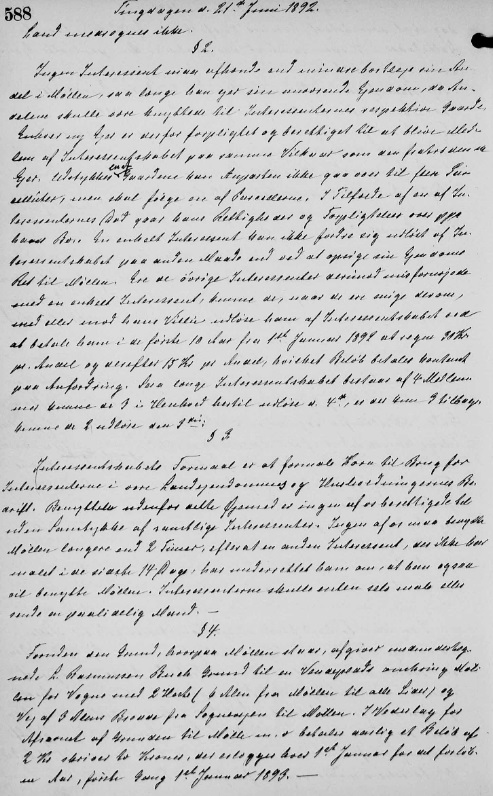 588
Tingdagen d. 21de Juni 1892.
Cand medsoegnes ikke.
§ 2.
Ingen Interessent maa afhænde end mindre bortleje sin An-
del i Møllen, saa længe han ejer sin nuværende Ejendom, da An-
delene skulle være knyttede til Interessenternes respektive Gaarde.
Enhver ny Ejer er derfor forpligtet og berettiget til at blive Med-
lem af Interessentskabet paa samme Vilkaar som den fratrædende
Ejer. Udstykkes en af Gaardene kan Anparten ikke gaa over til flere Par-
cellister, men skal følge en af Parcellerne. I Tilfælde af en af In-
teressenternes Død gaar hans Rettigheder og Forpligtelser over paa
hans Bo. En enkelt Interessent kan ikke fordre sig udløst af In-
teressentskabet paa anden Maade end ved at opsige sin Ejendoms
Ret til Møllen. Ere de øvrige Interessenter derimod misfornøjede
med en enkelt Interessent, kunne de, naar de ere enige derom,
med eller mod hans Villie udløse ham af Interessentskabet ved
at betale ham i de første 10 Aar fra 1ste Januar 1892 at regne 30 Kr
pr. Andel og derefter 15 Kr pr Andel, hvilket Beløb betales kontant
paa Anfordring. Saa længe Interessentskabet bestaar af 4 Medlem-
mer kunne de 3 i Henhold hertil udløse d. 4de, er der kun 3 tilbage,
kunne de 2 udløse den 3die.
§ 3.
Interessentskabets Formaal er at formale Korn til Brug for
Interessenterne i vore Landejendommes og Husholdningernes Be-
drift. Benyttelse udenfor dette Øjemed er ingen af os berettigede til
uden Samtykke af samtlige Interessenter. Ingen af os maa benytte
Møllen længere end 2 Timer, efter at en anden Interessent, der ikke har
malet i de sidste 14 Dage, har underrettet ham om, at han ogsaa
vil benytte Møllen. Interessenterne skulle enten selv male eller
sende en paalidelig Mand. —
§ 4.
Foruden den Grund, hvorpaa Møllen staar, afgiver medunderteg-
nede L Rasmussen Buch Grund til en Vendeplads omkring Møl-
len for Vogne med 2 Heste (6 Alen fra Møllen til alle Sider) og
Vej af 3 Alens Brede fra Sognevejen til Møllen. I Vederlag for
Afsavnet af Grunden til Mølle m. v betales aarlig et Beløb af
2 Kr skriver to Kroner, der erlægges hver 1ste Januar for det forløb-
ne Aar, første Gang 1ste Januar 1893. —